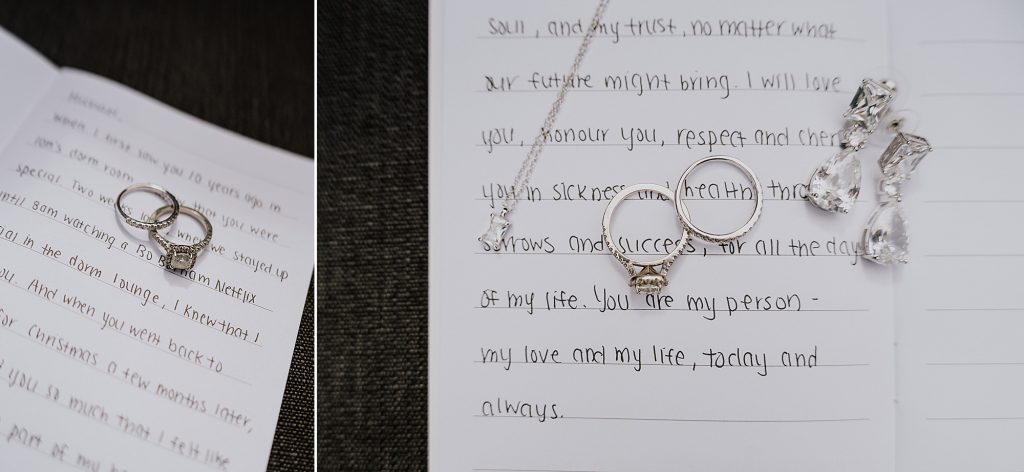 when I first saw you 10 years ago in
Ion's dorm room that you were
special. Two weeks when we stayed up
until 8am watching a Bo Burnham Netflix
in the dorm lounge, I knew that I
you. And when you went back to
for Christmas a few months later,
you so much that I felt like
part of my
soul, and my trust, no matter what
our future might bring. I will love
you, honour you, respect and cher
you in sickness and health, thro
sorrows and success, for all the day
of my life. You are my person -
my love and my life, today and
always.